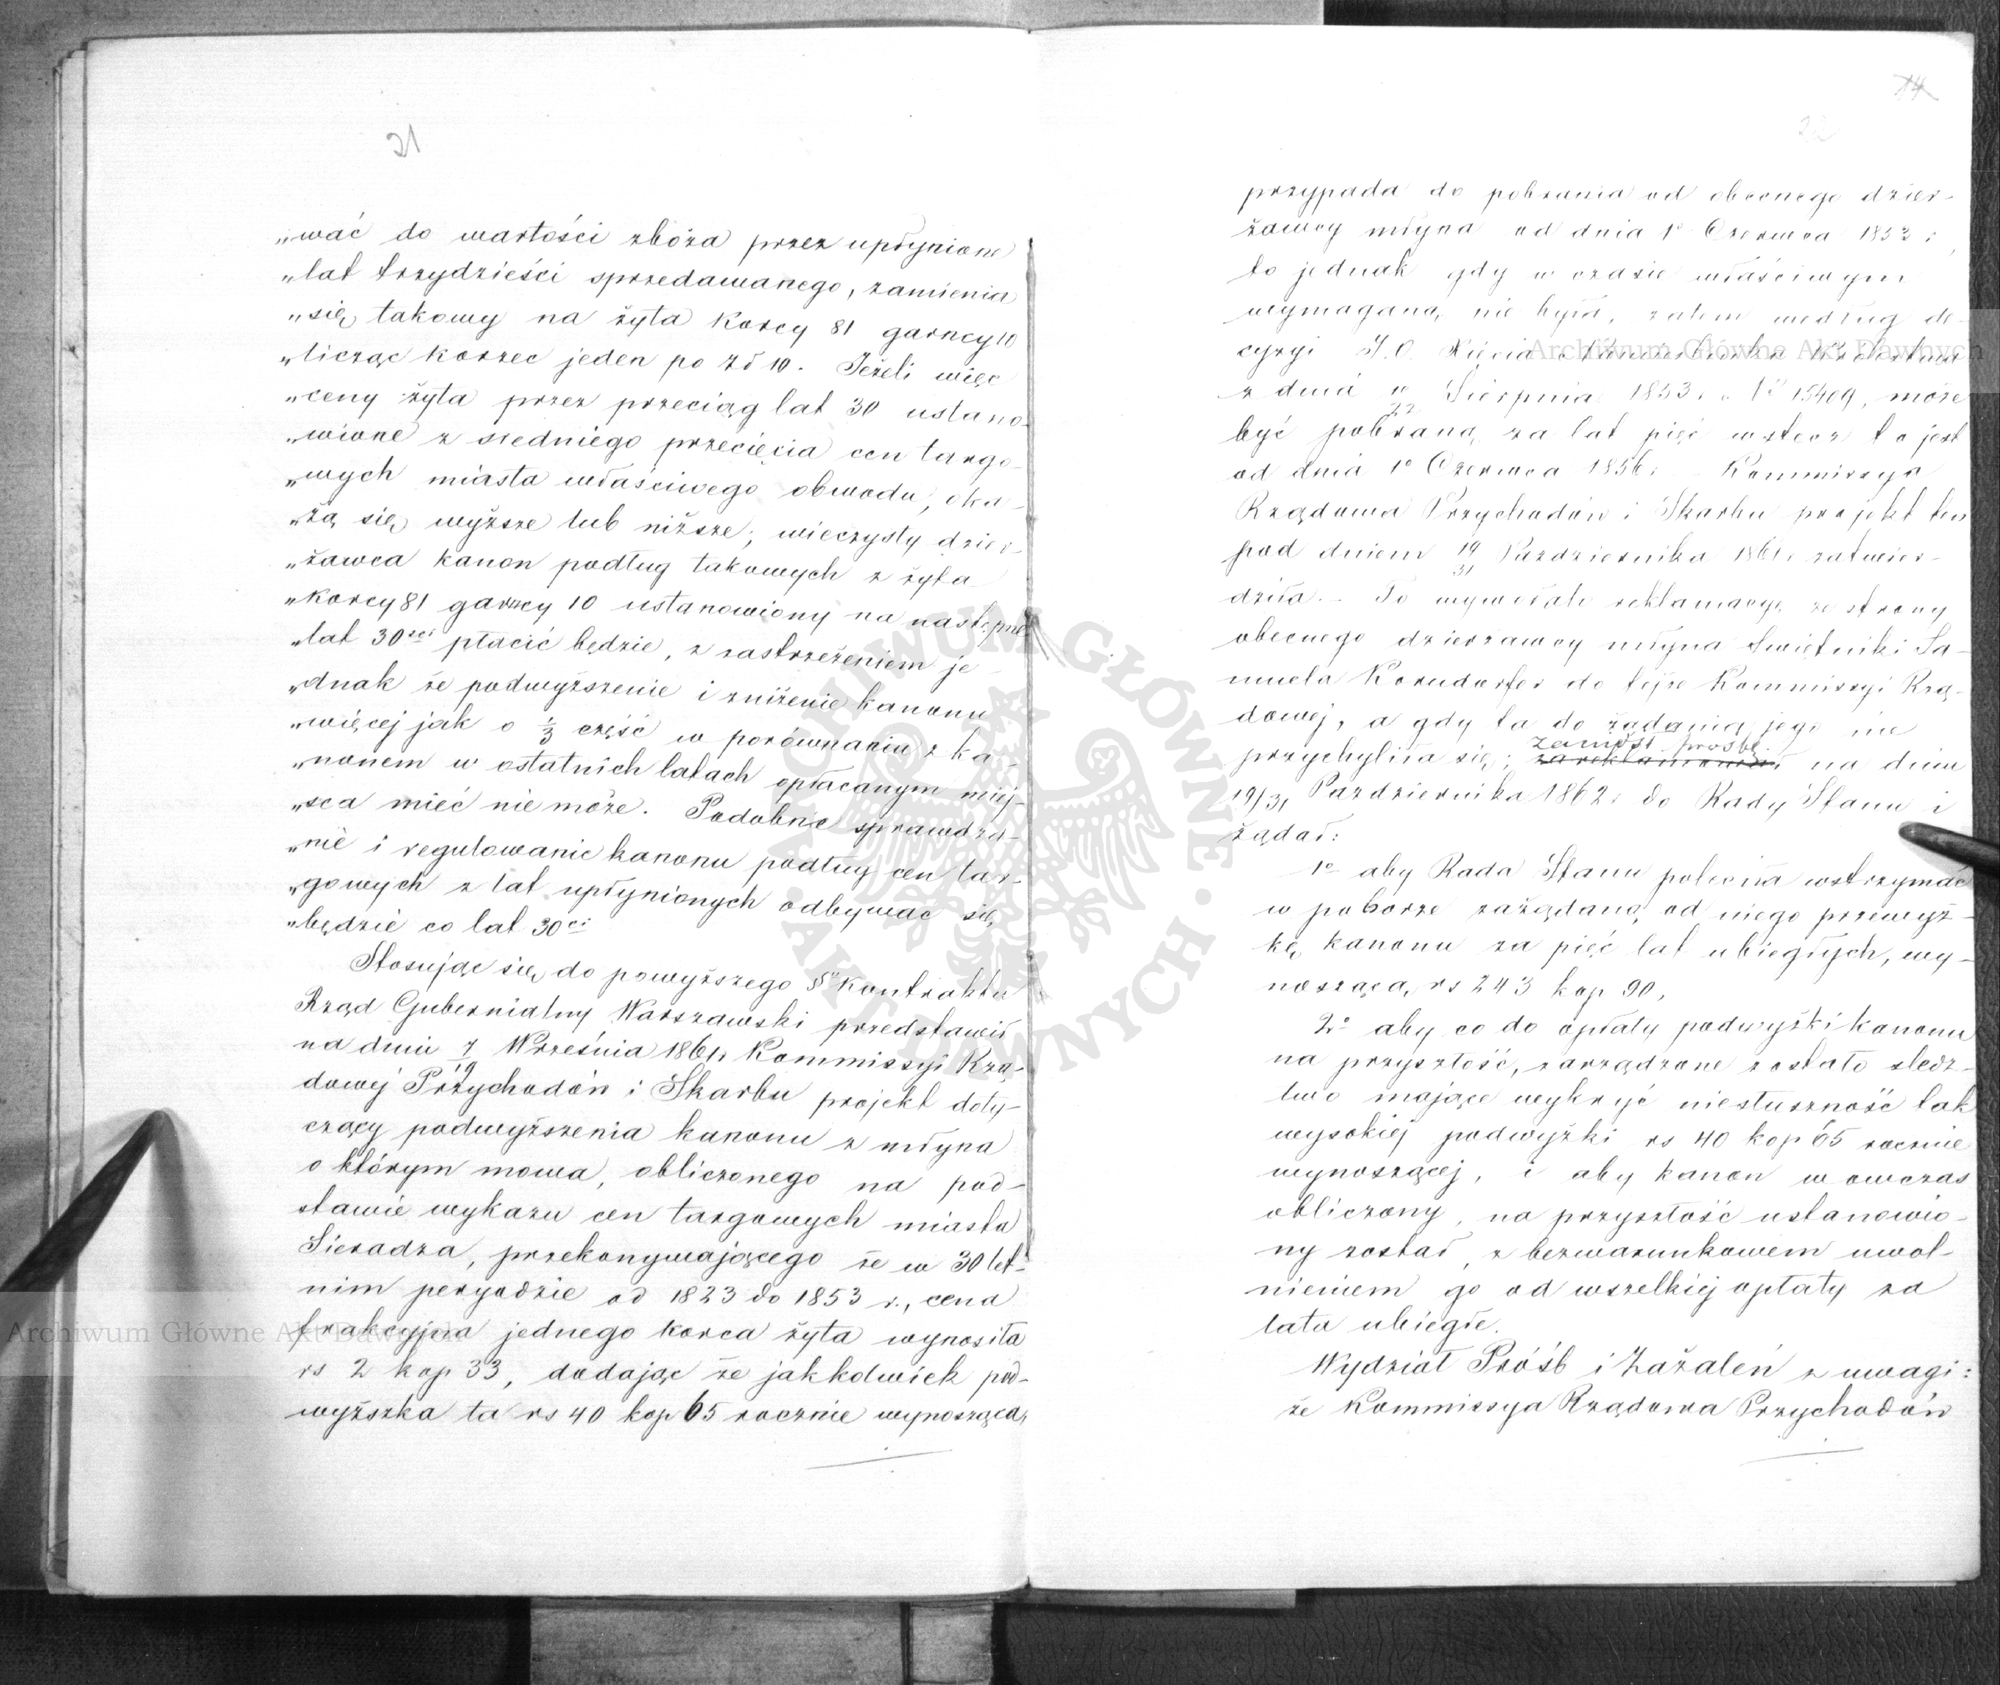 21
„wać do wartości zboża przez upłynione
„lat trzydzieści sprzedawanego, zamienia
„się takowy na żyta korcy 81 garncy 10
„licząc korzec jeden po zł 10. Jeżeli więc
„ceny żyta przez przeciąg lat 30 ustano-
„wione z średniego przecięcia cen targo-
„wych miasta właściwego obwodu, oka-
„żą się wyższe lub niższe; wieczysty dzier-
„żawca kanon podług takowych z żyta
„korcy 81 garncy 10 ustanowiony na następne
„lat 30 płacić będzie, z zastrzeżeniem je-
„dnak że podwyższenie i zniżenie kanonu
„więcej jak o 1/3 część w porównaniu z ka-
„nonem w ostatnich latach opłacanym miej-
„sca mieć nie może. Podobne sprawdza-
„nie i regulowanie kanonu podług cen tar-
„gowych z lat upłynionych odbywać się
„będzie co lat 30ci
Stosując się do powyższego §u kontraktu
Rząd Gubernialny Warszawski przedstawił
na dniu 7/19 Września 1861 r. Kommissyi Rzą-
dowej Przychodów i Skarbu projekt doty-
czący podwyższenia kanonu z młyna
o którym mowa, obliczonego na pod-
stawie wykazu cen targowych miasta
Sieradza, przekonywającego że w 30 let-
nim peryodzie od 1823 do 1853 r., cena
frakcyjna jednego korca żyta wynosiła
rs 2 kop 33, dodając że jakkolwiek pod-
wyższka ta rs 40 kop 65 rocznie wynosząca,
14
22
przypada do pobrania od obecnego dzier-
żawcy młyna od dnia 1o Czerwca 1853 r
to jednak gdy w czasie właściwym
wymaganą nie była, zatem według de-
cyzyi J.O. Xięcia Namiestnika Królestwa
z dnia Sierpnia 1853 r. No 15409, może
być pobraną za lat pięć wstecz to jest
od dnia 1o Czerwca 1856 r. Kommissya
Rządowa Przychodów i Skarbu projekt ten
pod dniem 19/31 Października 1861 r. zatwier-
dziła. – To wywołało reklamacyę ze strony
obecnego dzierżawcy młyna Świętniki Sa-
muela Korndorfer do tejże Kommissyi Rzą-
dowej, a gdy ta do żądania jego nie
przychyliła się; zaniósł prośbę zareklamował na dniu
19/31 Października 1862 r. do Rady Stanu i
żądał:
1o aby Rada Stanu poleciła wstrzymać
w poborze zażądaną od niego przewyż-
kę kanonu za pięć lat ubiegłych, wy-
noszącą rs 243 kop 90,
2o aby co do opłaty podwyżki kanonu
na przyszłość, zarządzone zostało śledz-
two mające wykryć niesłuszność tak
wysokiej podwyżki rs 40 kop 65 rocznie
wynoszącej, i aby kanon wowczas
obliczony, na przyszłość ustanowio-
ny został, z bezwarunkowem uwol-
nieniem go od wszelkiej opłaty za
lata ubiegłe.
Wydział Próśb i Zażaleń z uwagi:
że Kommissya Rządowa Przychodów
Archiwum Główne Akt Dawnych
Archiwum Główne Akt Dawnych
ARCHIWUM GŁÓWNE · AKT DAWNYCH ·